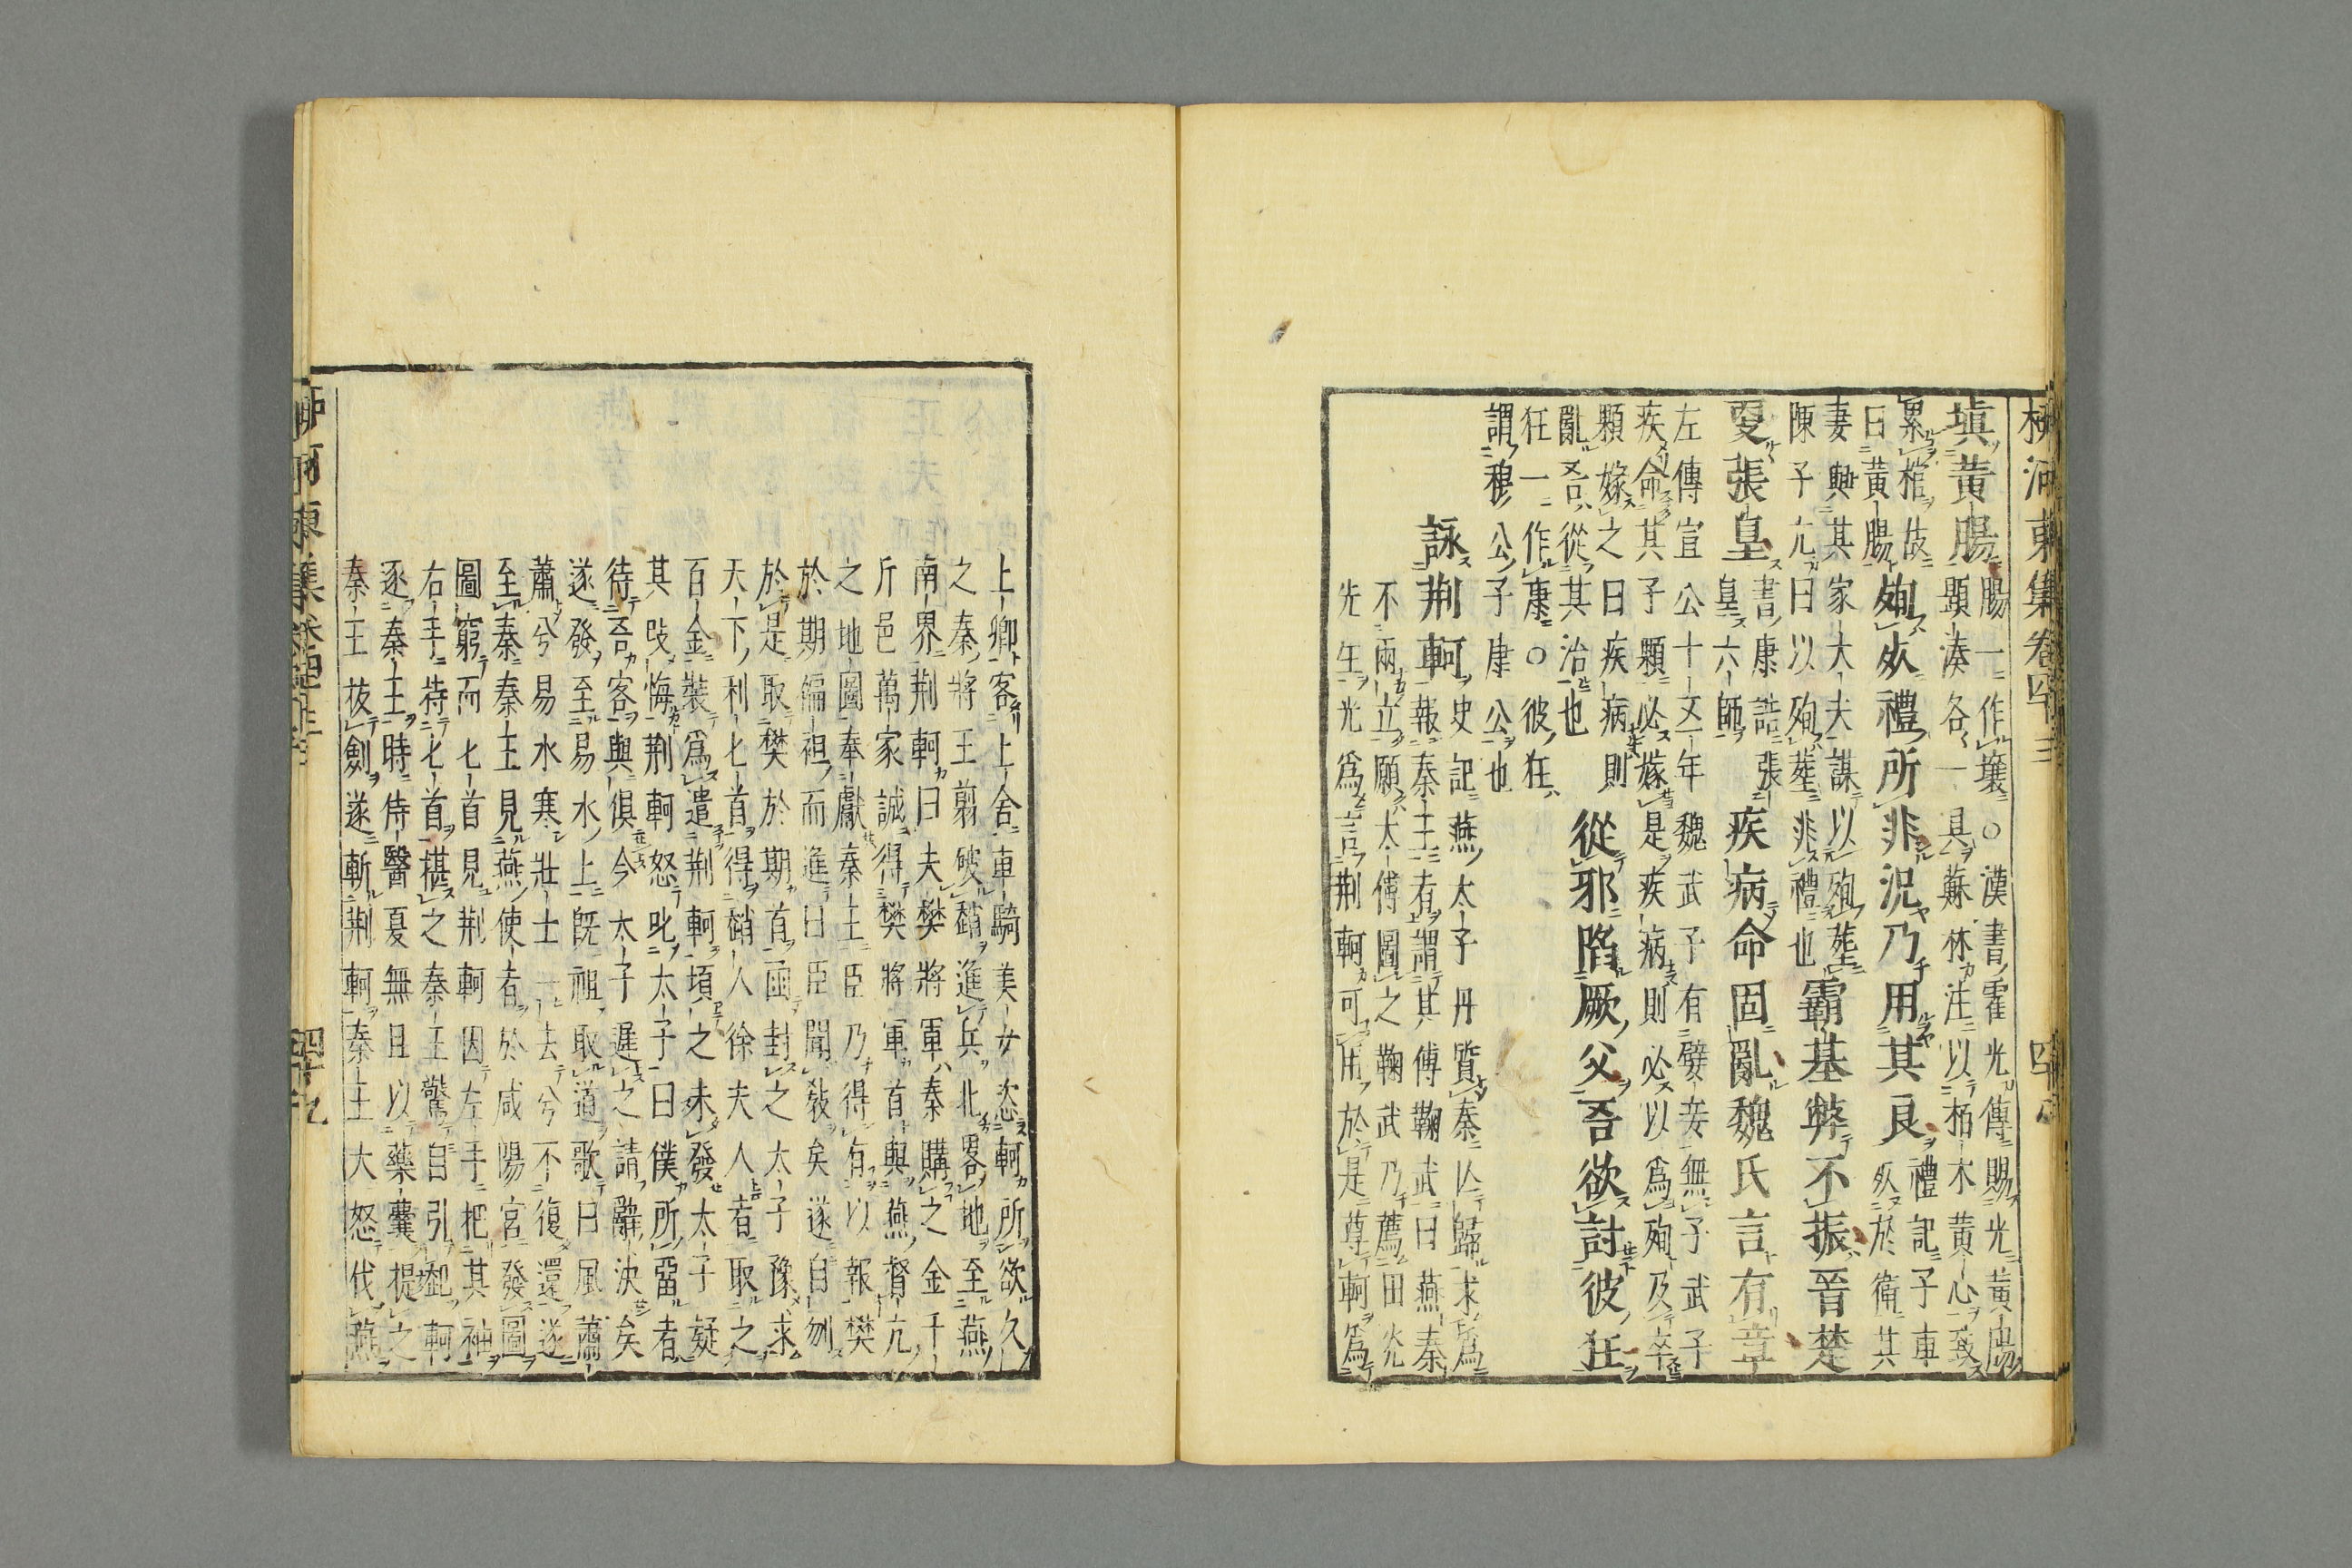 柳河東集卷四十三　四八
塡黃膓膓一作壤○漢書霍光傳賜光黃膓
題湊各一具蘇林注以栢木黃心致
累棺故
曰黃膓殉死禮所非況乃用其良禮記子車
死於衛其
妻與其家大夫謀以殉葬
陳子亢曰以殉葬非禮也霸基弊不振晉楚
更張皇書康誥張
皇六師疾病命固亂魏氏言有章
左傳宣公十五年魏武子有嬖妾無子武子
疾命其子顆必嫁是疾病則必以爲殉及卒
顆嫁之曰疾病則
亂吾從其治也從邪陷厥父吾欲討彼狂
狂一作康○彼狂
謂穆公子康公也
詠荆軻史記燕太子丹質秦亾歸求爲
報秦王有謂其傅鞠武曰燕秦
不兩立願太傅圖之鞠武乃薦田光
先生光爲言荆軻可用於是尊軻爲
上卿客上舍車騎美女恣軻所欲久
之秦將王翦破趙進兵北畧地至燕
南界荆軻曰夫樊將軍秦購之金千
斤邑萬家誠得樊將軍首與燕督亢
之地圖奉獻秦王臣乃得有以報樊
於期偏袒而進曰臣聞敎矣遂自刎
於是取樊於期首函封之太子豫求
天下利匕首得趙人徐夫人者取之
百金裝爲遣荆軻頃之未發太子疑
其改悔荆軻怒叱太子曰僕所畱者
待吾客與俱今太子遲之請辭決矣
遂發至易水上旣祖取道歌曰風蕭
蕭兮易水寒壯士一去兮不復還遂
至秦秦王見燕使者於咸陽宮發圖
圖窮而匕首見荆軻因左手把其袖
右手持匕首揕之秦王驚自引起軻
逐秦王時侍醫夏無且以藥囊提之
秦王拔劍遂斬荆軻秦王大怒伐燕